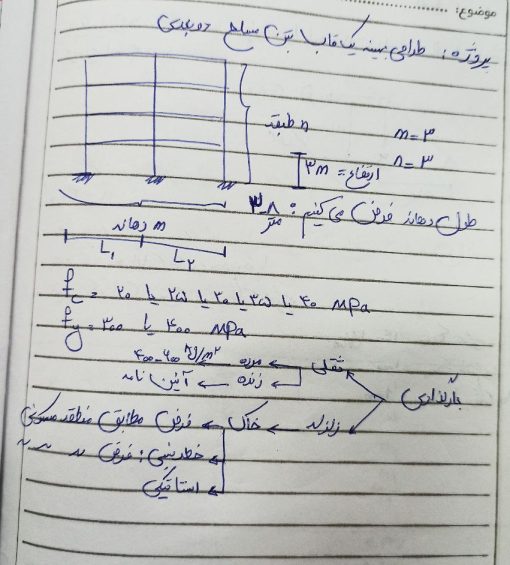 موضوع:
پروژه: طراحی بهینه یک قاب بتن مسلح دوبعدی
n طبقه
m = ۳
n = ۳
ارتفاع = ۳m
طول دهانه فرض می کنیم: ۳-۸ متر
m دهانه
L₁ L₂
f_c = ۲۰ یا ۲۵ یا ۳۰ یا ۳۵ یا ۴۰ MPa
f_y = ۳۰۰ یا ۴۰۰ MPa
بارگذاری
ثقلی ← مرده ← ۴۰۰-۶۰۰ kg/m²
زنده ← آئین نامه
زلزله ← خاک ← فرض مطابق منطقه مسکونی
خطرپذیری: فرض
استاتیکی